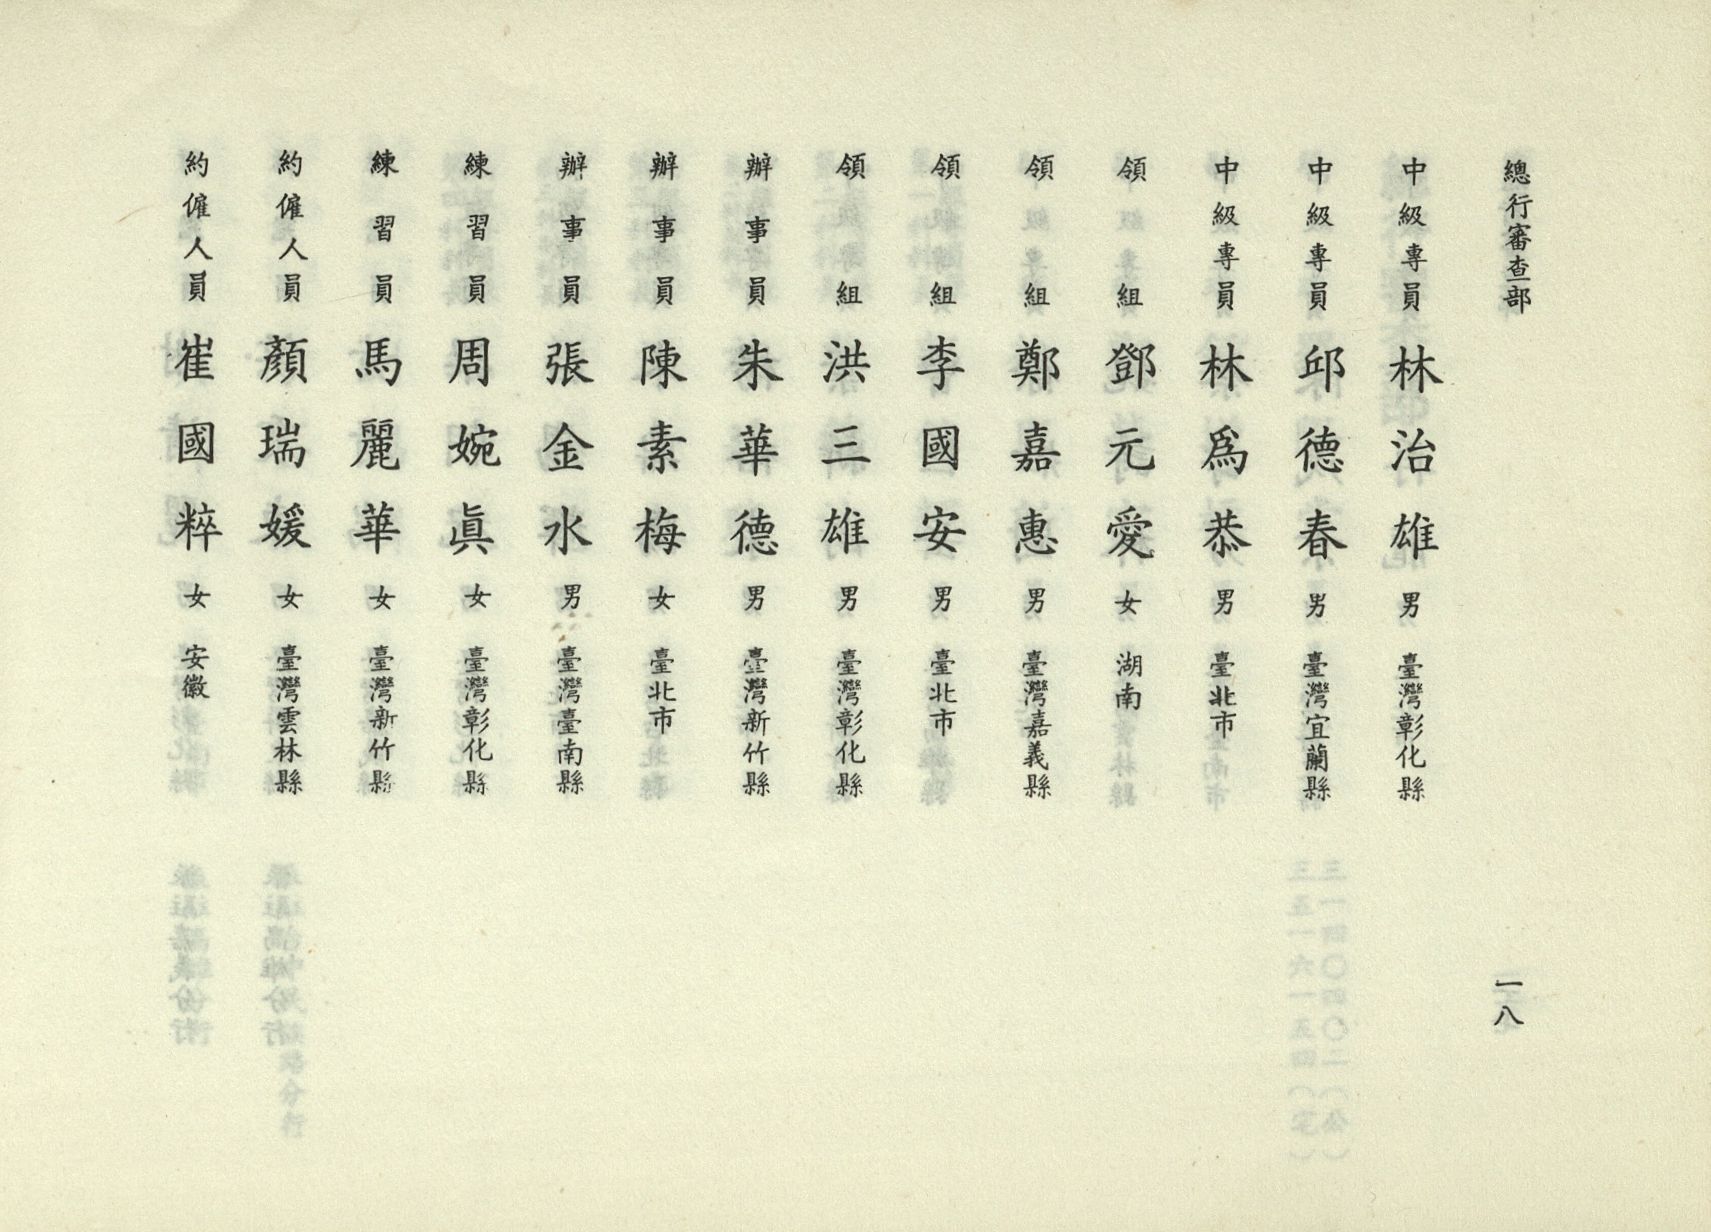 總行審查部
一八
中級專員 林治雄 男 臺灣彰化縣
中級專員 邱德春 男 臺灣宜蘭縣
中級專員 林爲恭 男 臺北市
領組 鄧元愛 女 湖南
領組 鄭嘉惠 男 臺灣嘉義縣
領組 李國安 男 臺北市
領組 洪三雄 男 臺灣彰化縣
辦事員 朱華德 男 臺灣新竹縣
辦事員 陳素梅 女 臺北市
辦事員 張金水 男 臺灣臺南縣
練習員 周婉眞 女 臺灣彰化縣
練習員 馬麗華 女 臺灣新竹縣
約僱人員 顏瑞媛 女 臺灣雲林縣
約僱人員 崔國粹 女 安徽